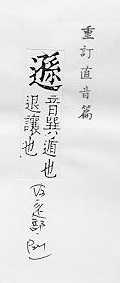 重訂直音篇
遜
音巽遁也
退讓也